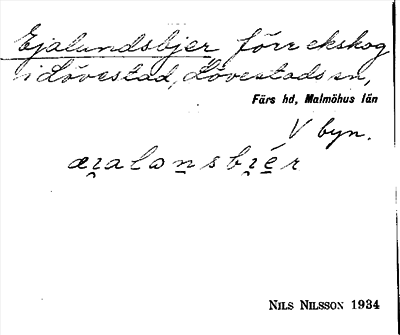 Ejalundsbjer förr ekskog
i Lövestad, Lövestads sn,
Färs hd, Malmöhus län
V byn.
æi̯alansbi̯ér
NILS NILSSON 1934